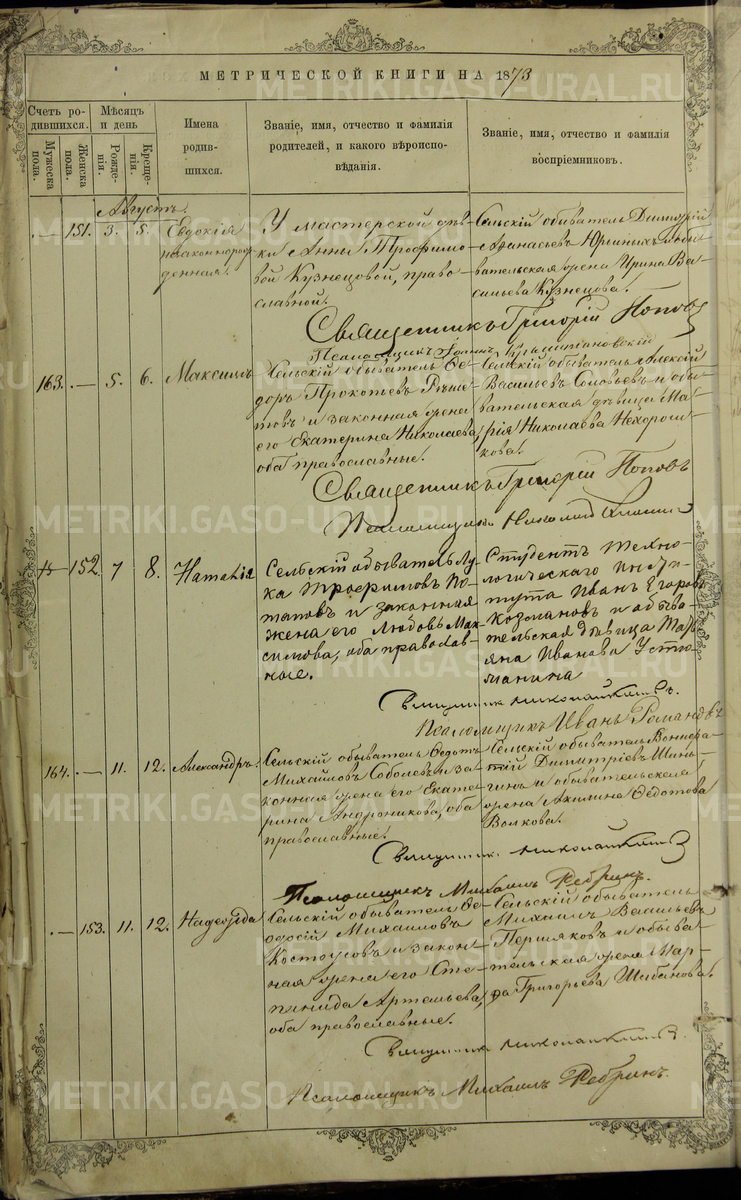 МЕТРИЧЕСКОЙ КНИГИ НА 1873
Счетъ родившихся.
Мужеска пола.
Женска пола.
Мѣсяцъ и день
Рожденія.
Крещенія.
Имена родившихся.
Званіе, имя, отчество и фамилія родителей, и какого вѣроисповѣданія.
Званіе, имя, отчество и фамилія воспріемниковъ.
Августъ.
151. 3. 5. Евдокія
незаконнорожденная.
У мастерской дѣв-
ки Анны Трофимо-
вой Кузнецовой, право-
славной.
Сельскій обыватель Димитрій
Аѳанасьевъ и обы-
вательская жена Ирина Ва-
сильева Кузнецова.
Священникъ Григорій Поповъ
Псаломщикъ
163. 5. 6. Максимъ
Сельскій обыватель Ѳе-
доръ Прокопьевъ Рѣше-
товъ и законная жена
его Екатерина Николаева,
оба православные.
Сельскій обыватель Алексѣй
Васильевъ Соловьевъ и обы-
вательская дѣвица Ма-
рія Николаева Нехорош-
кова.
Священникъ Григорій Поповъ
Псаломщикъ Николай
152. 7 8. Наталія
Сельскій обыватель Лу-
ка Трофимовъ По-
таповъ и законная
жена его Любовь Мак-
симова, оба православ-
ные.
Студентъ Техно-
логическаго Инсти-
тута Иванъ Егоровъ
Козмановъ и обыва-
тельская дѣвица Тать-
яна Иванова Устю-
жанина
Псаломщикъ Иванъ Романовъ
164. 11. 12. Александръ.
Сельскій обыватель Ѳедотъ
Михайловъ Соболевъ и за-
конная жена его Екате-
рина Андроникова, оба
православные.
Сельскій обыватель
Димитріевъ
и обывательская
жена Акилина Ѳедотова
Волкова.
Псаломщикъ Михаилъ Ребринъ.
153. 11. 12. Надежда
Сельскій обыватель Ѳе-
одосій Михаиловъ
Костоусовъ и закон-
ная жена его Сте-
панида Артемьева,
оба православные.
Сельскій обыватель
Михаилъ Васильевъ
Першяковъ и обыва-
тельская жена Мар-
ѳа Григорьева Шабанова.
Псаломщикъ Михаилъ Ребринъ.
METRIKI.GASO-URAL.RU